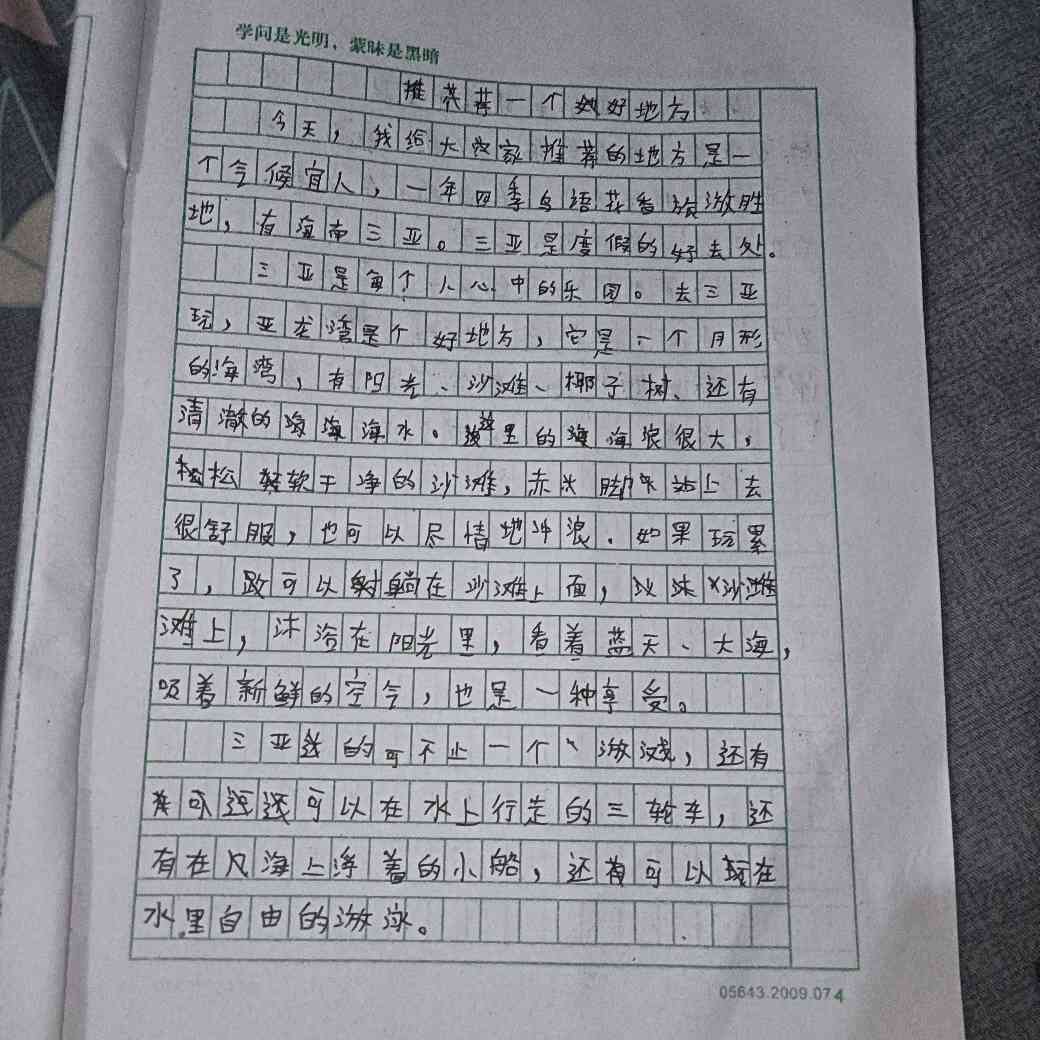 学问是光明，蒙昧是黑暗
推荐一个好地方
今天，我给大家推荐的地方是一
个气候宜人，一年四季鸟语花香旅游胜
地，有海南三亚。三亚是度假的好去处。
三亚是每个人心中的乐园。去三亚
玩，亚龙湾是个好地方，它是一个月形
的海湾，有阳光、沙滩、椰子树、还有
清澈的海水。这里的海浪很大，
松软干净的沙滩，赤脚站上去
很舒服，也可以尽情地冲浪．如果玩累
了，可以躺在沙滩上面，沙滩
滩上，沐浴在阳光里，看着蓝天、大海，
吸着新鲜的空气，也是一种享受。
三亚的可不止一个游戏，还有
可还可以在水上行走的三轮车，还
有在海上浮着的小船，还有可以玩在
水里自由的游泳。
05643.2009.07 4